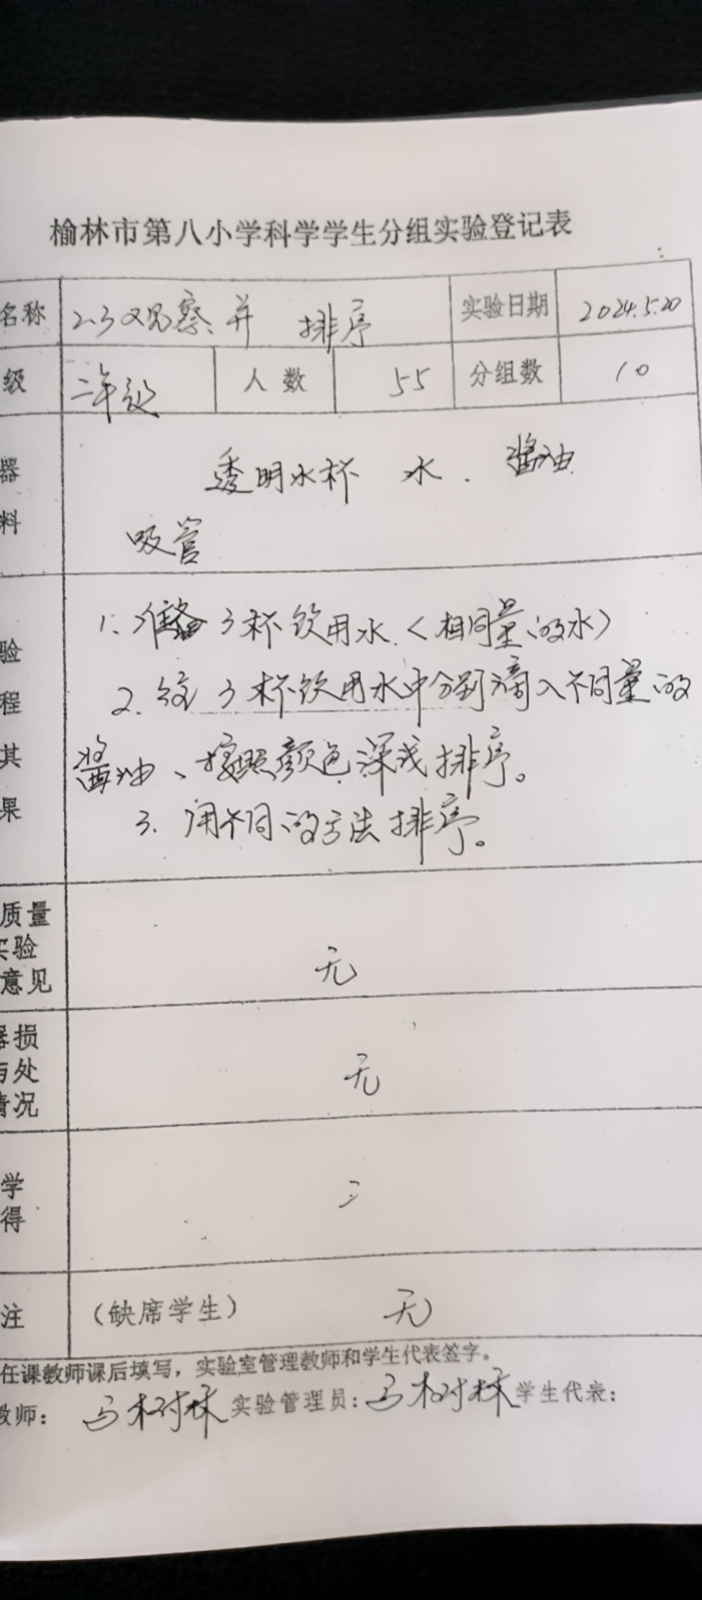 榆林市第八小学科学学生分组实验登记表
名称 2.3观察并 排序 实验日期 2024.5.20
级 二年级 人数 55 分组数 10
器 透明水杯 水、酱油
料 吸管
1、准备3杯饮用水（相同量的水）
验
2、给3杯饮用水中分别滴入不同量的
程
其 酱油、按照颜色深浅排序。
果 3、用不同的方法排序。
质量
实验 无
意见
器损
与处 无
情况
学
得
注 （缺席学生） 无
任课教师课后填写，实验室管理教师和学生代表签字。
教师： 马树林 实验管理员：马树林 学生代表：